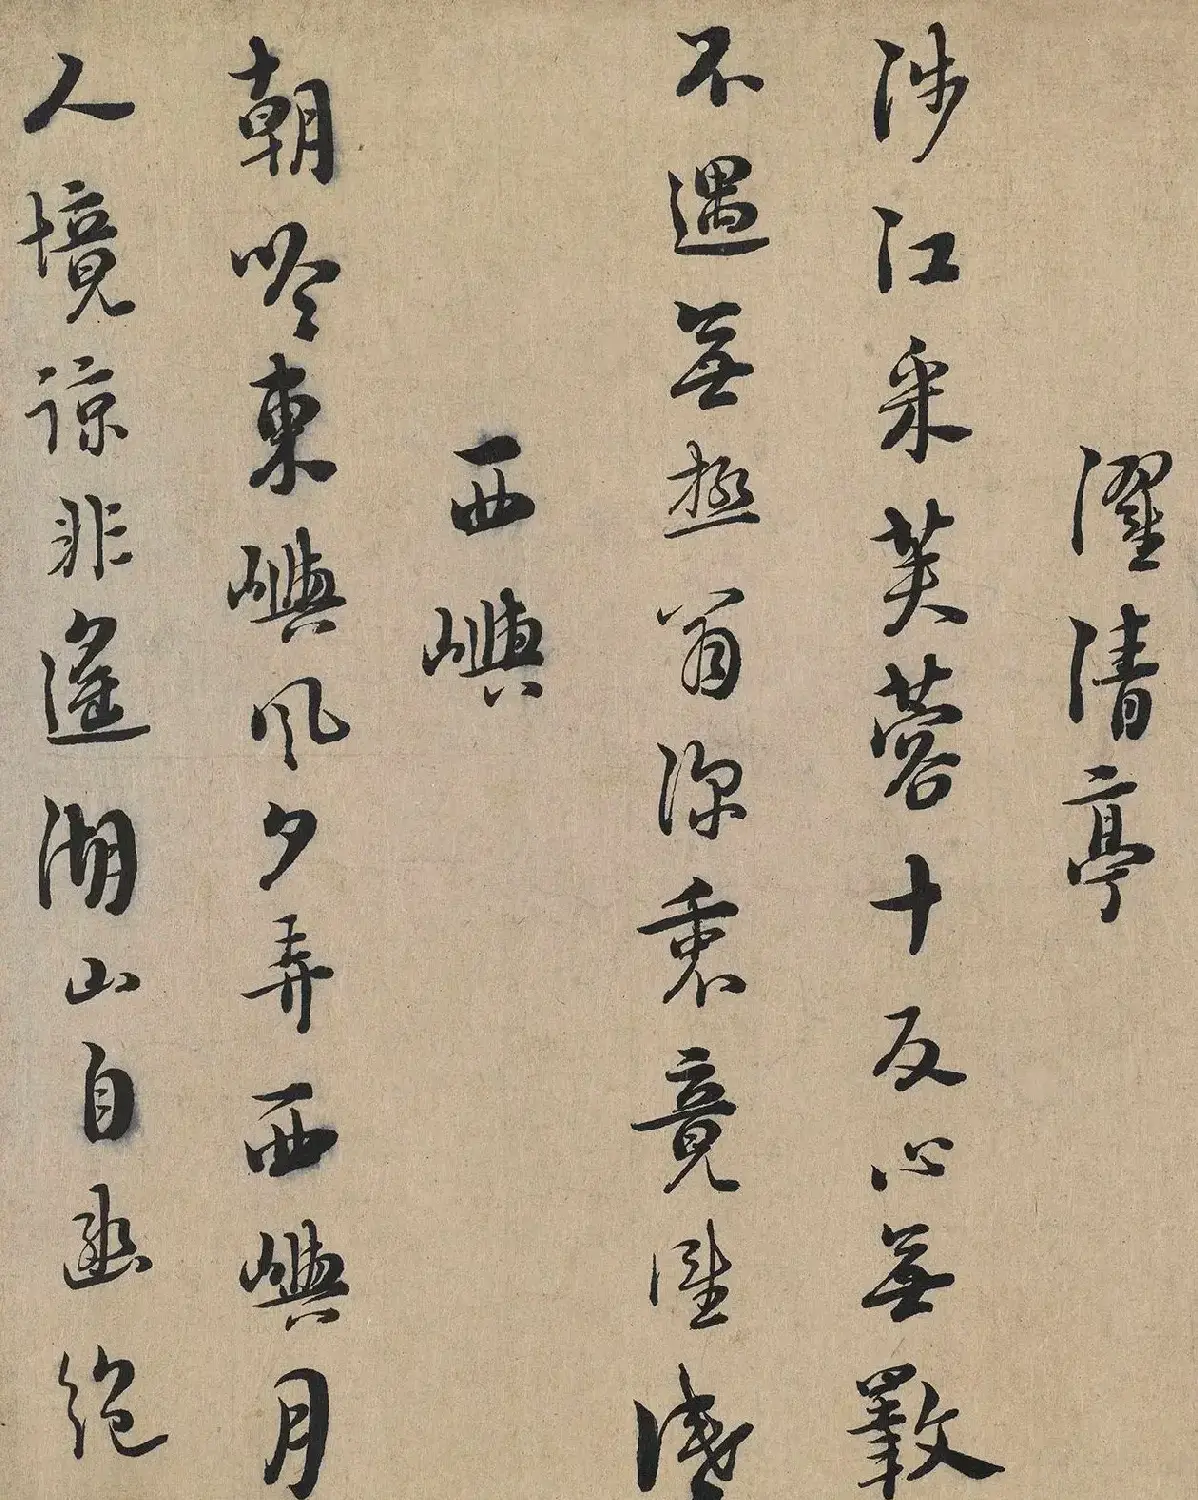 濯清亭
涉江采芙蓉十反心無斁
不遇無極翁深衷竟誰識
西嶼
朝吟東嶼風夕弄西嶼月
人境諒非遙湖山自幽絕